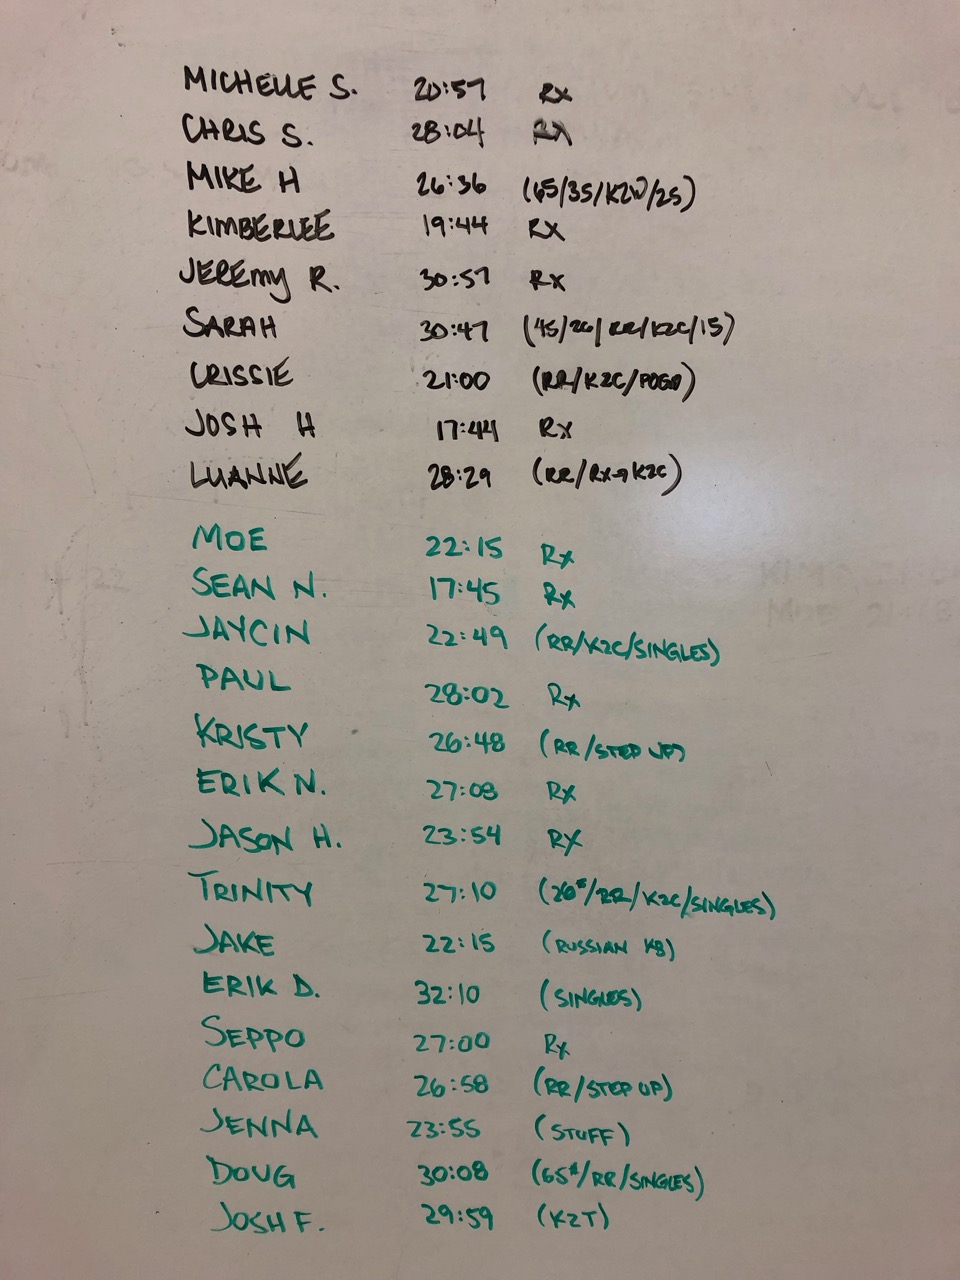 MICHELLE S. 20:57 Rx
CHRIS S. 28:04 Rx
MIKE H 26:36 (65/35/K2W/25)
KIMBERLEE 19:44 Rx
JEREMY R. 30:57 Rx
SARAH 30:47 (45/26/RR/K2C/15)
CRISSIE 21:00 (RR/K2C/POGO)
JOSH H 17:44 Rx
LUANNE 28:29 (RR/Rx→K2C)
MOE 22:15 Rx
SEAN N. 17:45 Rx
JAYCIN 22:49 (RR/K2C/SINGLES)
PAUL 28:02 Rx
KRISTY 26:48 (RR/STEP UP)
ERIK N. 27:08 Rx
JASON H. 23:54 RX
TRINITY 27:10 (26#/RR/K2C/SINGLES)
JAKE 22:15 (RUSSIAN KB)
ERIK D. 32:10 (SINGLES)
SEPPO 27:00 Rx
CAROLA 26:58 (RR/STEP UP)
JENNA 23:55 (STUFF)
DOUG 30:08 (65#/RR/SINGLES)
JOSH F. 29:59 (K2T)